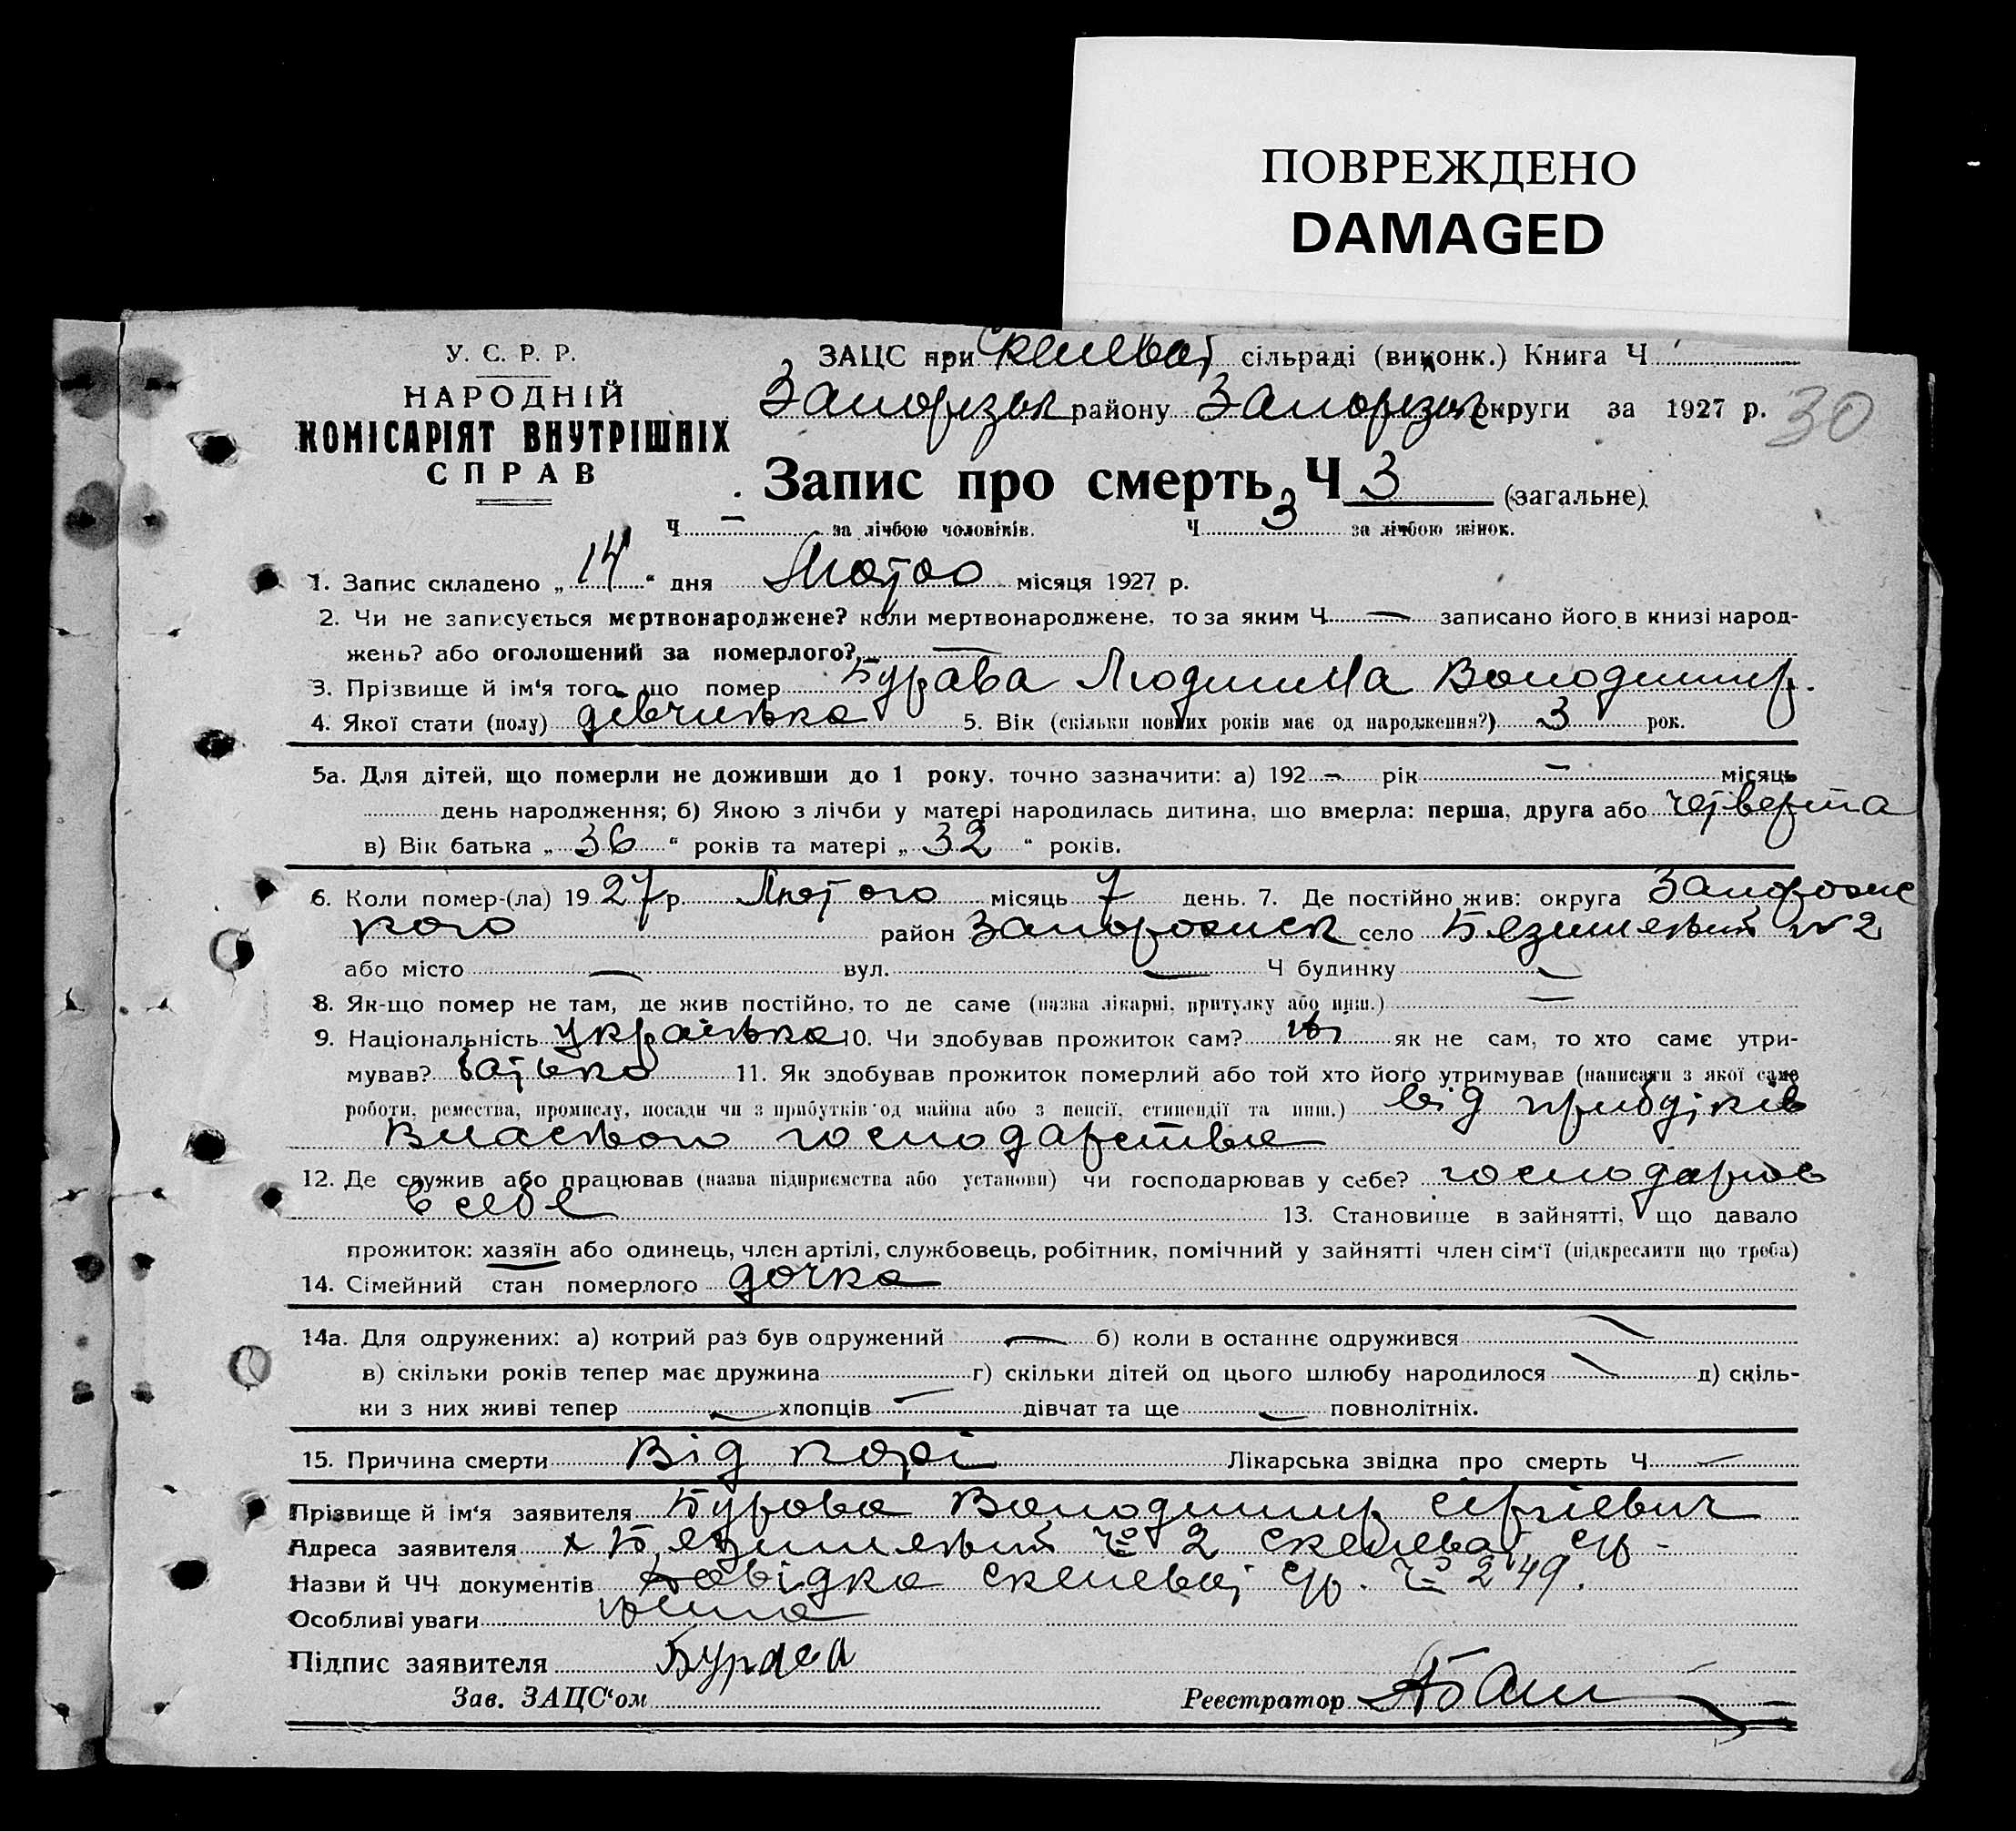 ПОВРЕЖДЕНО
DAMAGED
У. С. Р. Р.
НАРОДНІЙ
КОМІСАРІЯТ ВНУТРІШНІХ
СПРАВ
ЗАЦС при Скелеват сільраді (виконк.) Книга Ч
Запорізьк району Запорізьк округи за 1927 р. 30
Запис про смерть Ч 3 (загальне)
Ч — за лічбою чоловіків. Ч 3 за лічбою жінок.
1. Запис складено „ 14 “ дня Лютого місяця 1927 р.
2. Чи не записується мертвонароджене? коли мертвонароджене, то за яким Ч — записано його в книзі народ-
жень? або оголошений за померлого? —
3. Прізвище й ім‘я того, що помер Бурава Людмила Володимир.
4. Якої стати (полу) дівчинка 5. Вік (скільки повних років має од народження?) 3 рок.
5а. Для дітей, що померли не доживши до 1 року, точно зазначити: а) 192 – рік – місяць
день народження; б) Якою з лічби у матері народилась дитина, що вмерла: перша, друга або четверта
в) Вік батька „ 36 “ років та матері „ 32 “ років.
6. Коли помер-(ла) 1927 р. Лютого місяць 7 день. 7. Де постійно жив: округа Запорожс
кого район Запорожск село №2
або місто — вул. — Ч будинку —
8. Як-що помер не там, де жив постійно, то де саме (назва лікарні, притулку або инш.) —
9. Національність українка 10. Чи здобував прожиток сам? ні як не сам, то хто саме утри-
мував? батько 11. Як здобував прожиток померлий або той хто його утримував (написати з якої саме
роботи, ремества, промислу, посади чи з прибутків од майна або з пенсії, стипендії та инш.) від прибутків
власного господарства
12. Де служив або працював (назва підприємства або установи) чи господарював у себе? господарював
в себе 13. Становище в зайнятті, що давало
прожиток: хазяїн або одинець, член артілі, службовець, робітник, помічний у зайнятті член сім‘ї (підкреслити що треба)
14. Сімейний стан померлого дочка
14а. Для одружених: а) котрий раз був одружений — б) коли в останнє одружився —
в) скільки років тепер має дружина г) скільки дітей од цього шлюбу народилося — д) скіль-
ки з них живі тепер — хлопців — дівчат та ще — повнолітніх.
15. Причина смерти Від корі Лікарська звідка про смерть Ч —
Прізвище й ім‘я заявителя Бурава Володимир Сергіевич
Адреса заявителя х №2 Скелеват с/р
Назви й ЧЧ документів Довідка Скелеват с/р. № 249.
Особливі уваги нема
Підпис заявителя Бурава
Зав. ЗАЦС‘ом Реєстратор